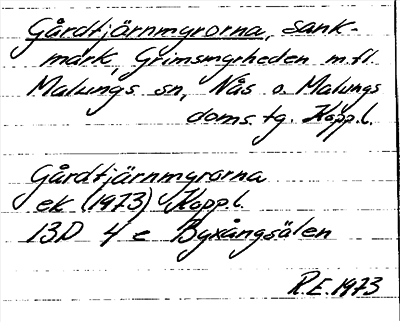 Gårdtjärnmyrorna, sank-
mark, Grimsmyrheden m.fl.
Malungs sn, Nås o. Malungs
doms.tg. Kopp.l.
Gårdtjärnmyrorna
ek (1973) Kopp.l.
13D 4e Byxångsälen
R.E. 1973